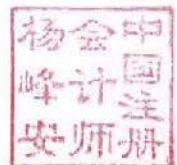 中国注册
会计师
杨峰安